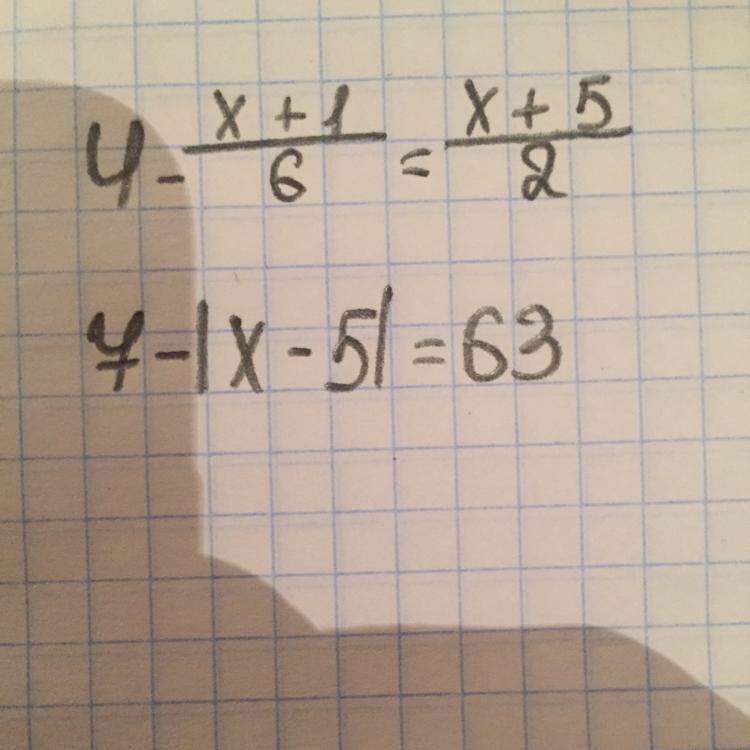 4 - (x + 1)/6 = (x + 5)/2
7 - |x - 5| = 63